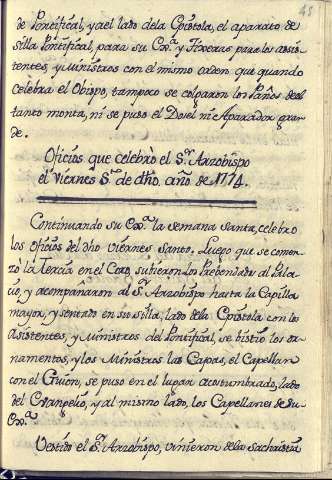 45
de Pontifical, y a el lado de la Epistola, el aparato de
silla Pontifical, para su Ex.ª y para los asis-
tentes, y Ministros con el mismo orden que quando
celebra el Obispo, tampoco se colgaron los Paños de el
tanto monta, ni se puso el Dosel ni Aparador gran-
de.
Oficios que celebrò el S.r Arzobispo
el Viernes S.to de dho, año de 1774.
Continuando su Ex.ª la semana santa, celebro
los oficios del dho viernes santo. Luego que se comen-
zò la Tercia en el Coro, subieron los Prebendados al Pala-
cio, y acompañaron al S.r Arzobispo hasta la Capilla
mayor, y sentado en su silla, lado de la Epistola con los
Asistentes, y Ministros del Pontifical, se bistiò los or-
namentos, y los Ministros las Capas, el Capellan
con el Guion, se puso en el lugar acostumbrado, lado
del Evangelio, y al mismo lado, los Capellanes de su
Ex.ª
Vestido el S.r Arzobispo, vinieron de la Sachristia